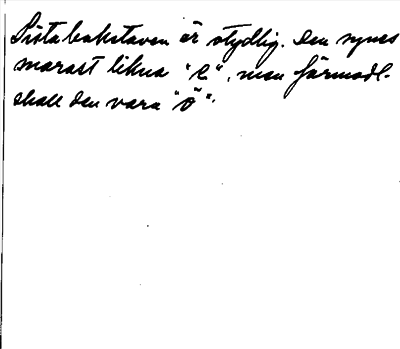 Sista bokstaven är otydlig. Den synes
marast likna "e", men förmodl.
skall den vara "ö".